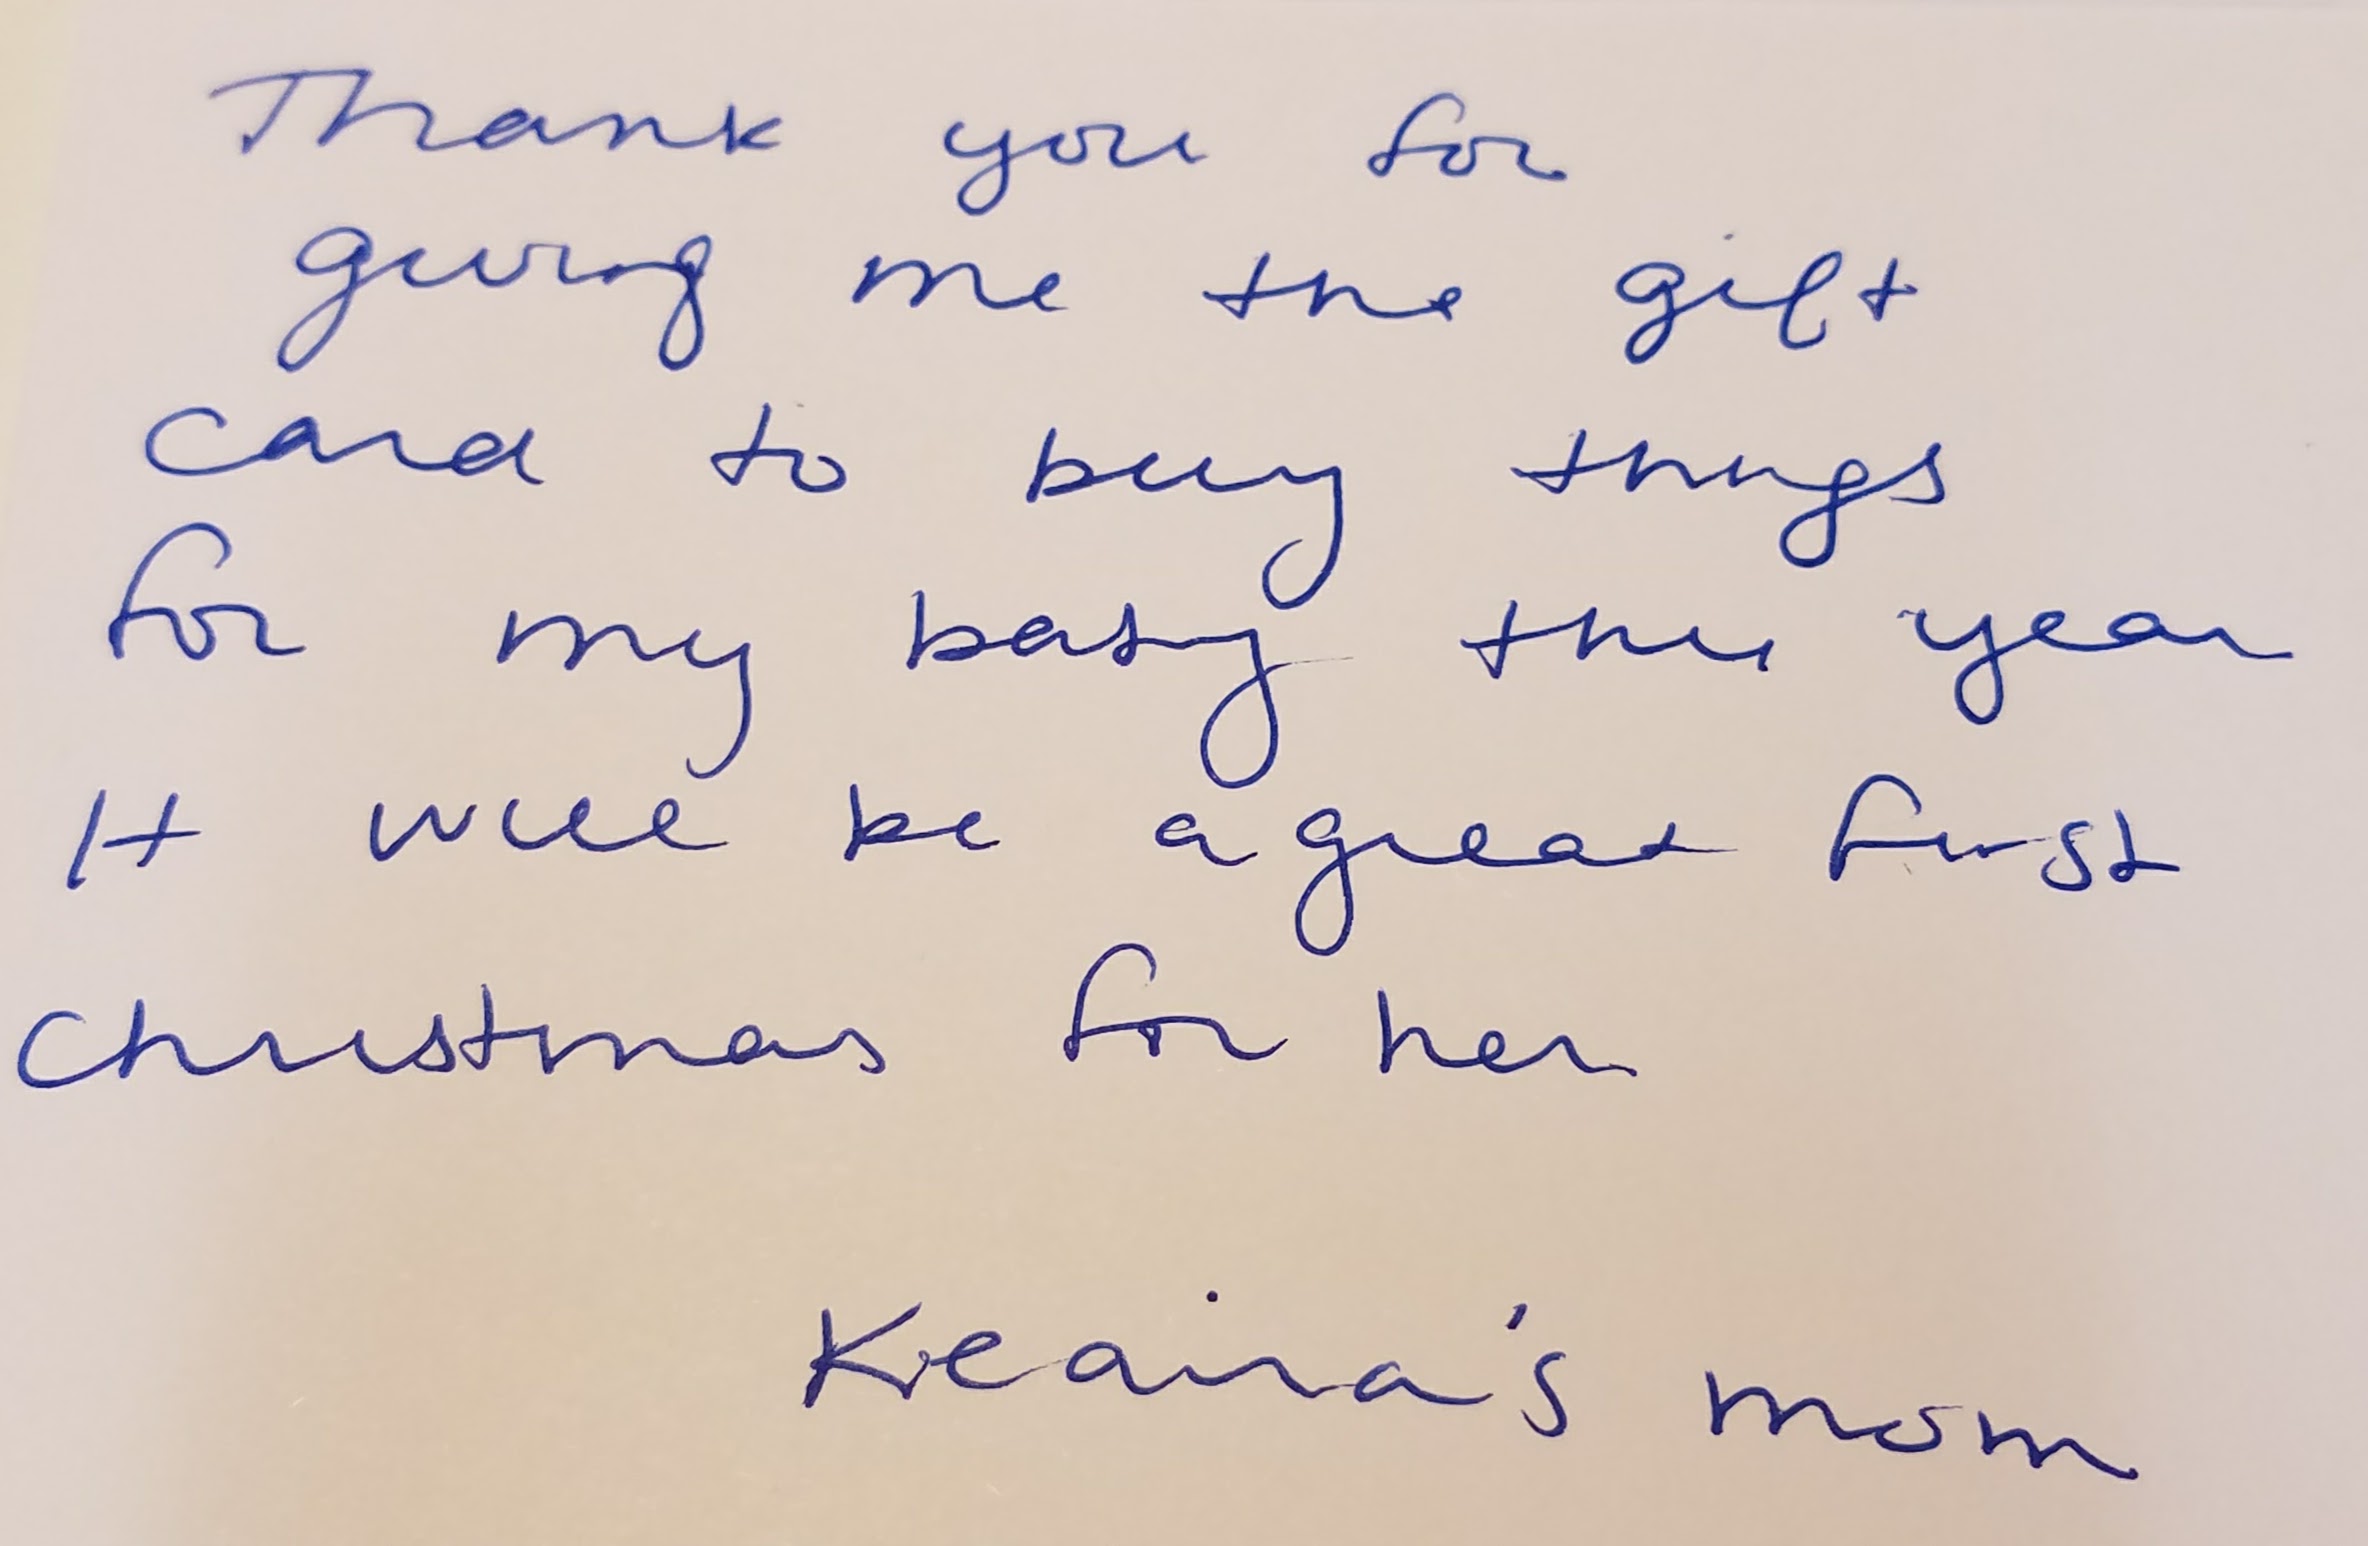 Thank you for
giving me the gift
card to buy things
for my baby this year
It will be a great first
Christmas for her
Keaira's mom